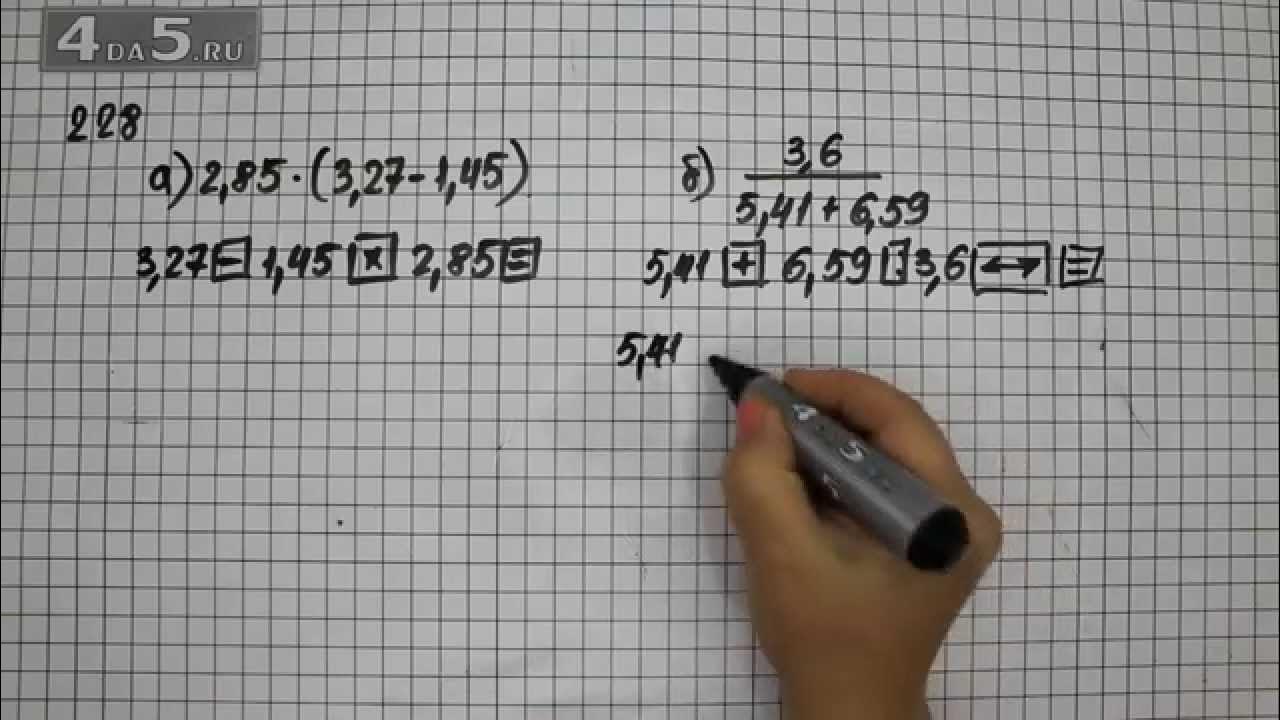 4DA5.RU
228
а) 2,85 · (3,27 - 1,45)
3,27 [-] 1,45 [×] 2,85 [=]
б) 3,6
5,41 + 6,59
5,41 [+] 6,59 [:] 3,6 [↔] [=]
5,41
4 5